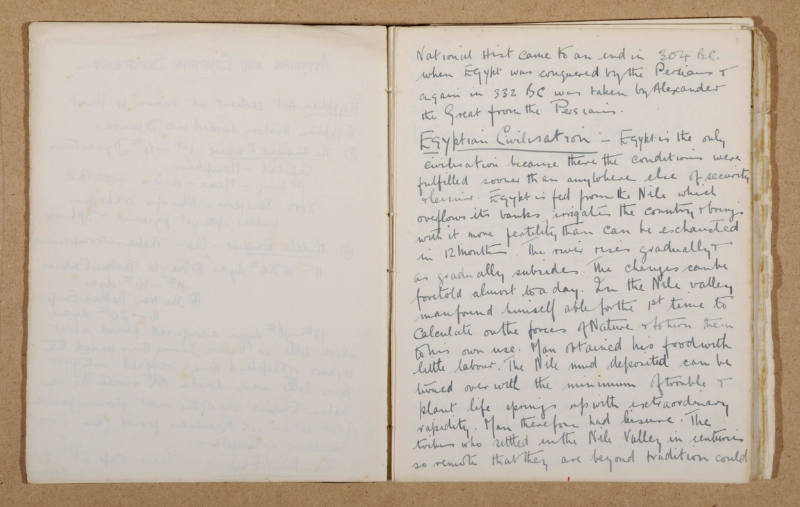 National Hist came to an end in 304 B.C.
when Egypt was conquered by the Persians &
again in 332 BC was taken by Alexander
the Great from the Persians.
Egyptian Civilisation – Egypt is the only
civilisation because there the conditions were
fulfilled sooner than anywhere else of security
& leisure. Egypt is fed from the Nile which
overflows its banks, irrigates the country & brings
with it more fertility than can be exhausted
in 12 months. The river rises gradually &
as gradually subsides. The changes can be
foretold almost to a day. In the Nile valley
man found himself able for the 1st time to
calculate on the forces of Nature & to turn them
to his own use. Man obtained his food with
little labour. The Nile mud deposited can be
turned over with the minimum of trouble &
plant life springs up with extraordinary
rapidity. Man therefore had leisure. The
tribes who settled in the Nile Valley in centuries
so remote that they are beyond tradition could